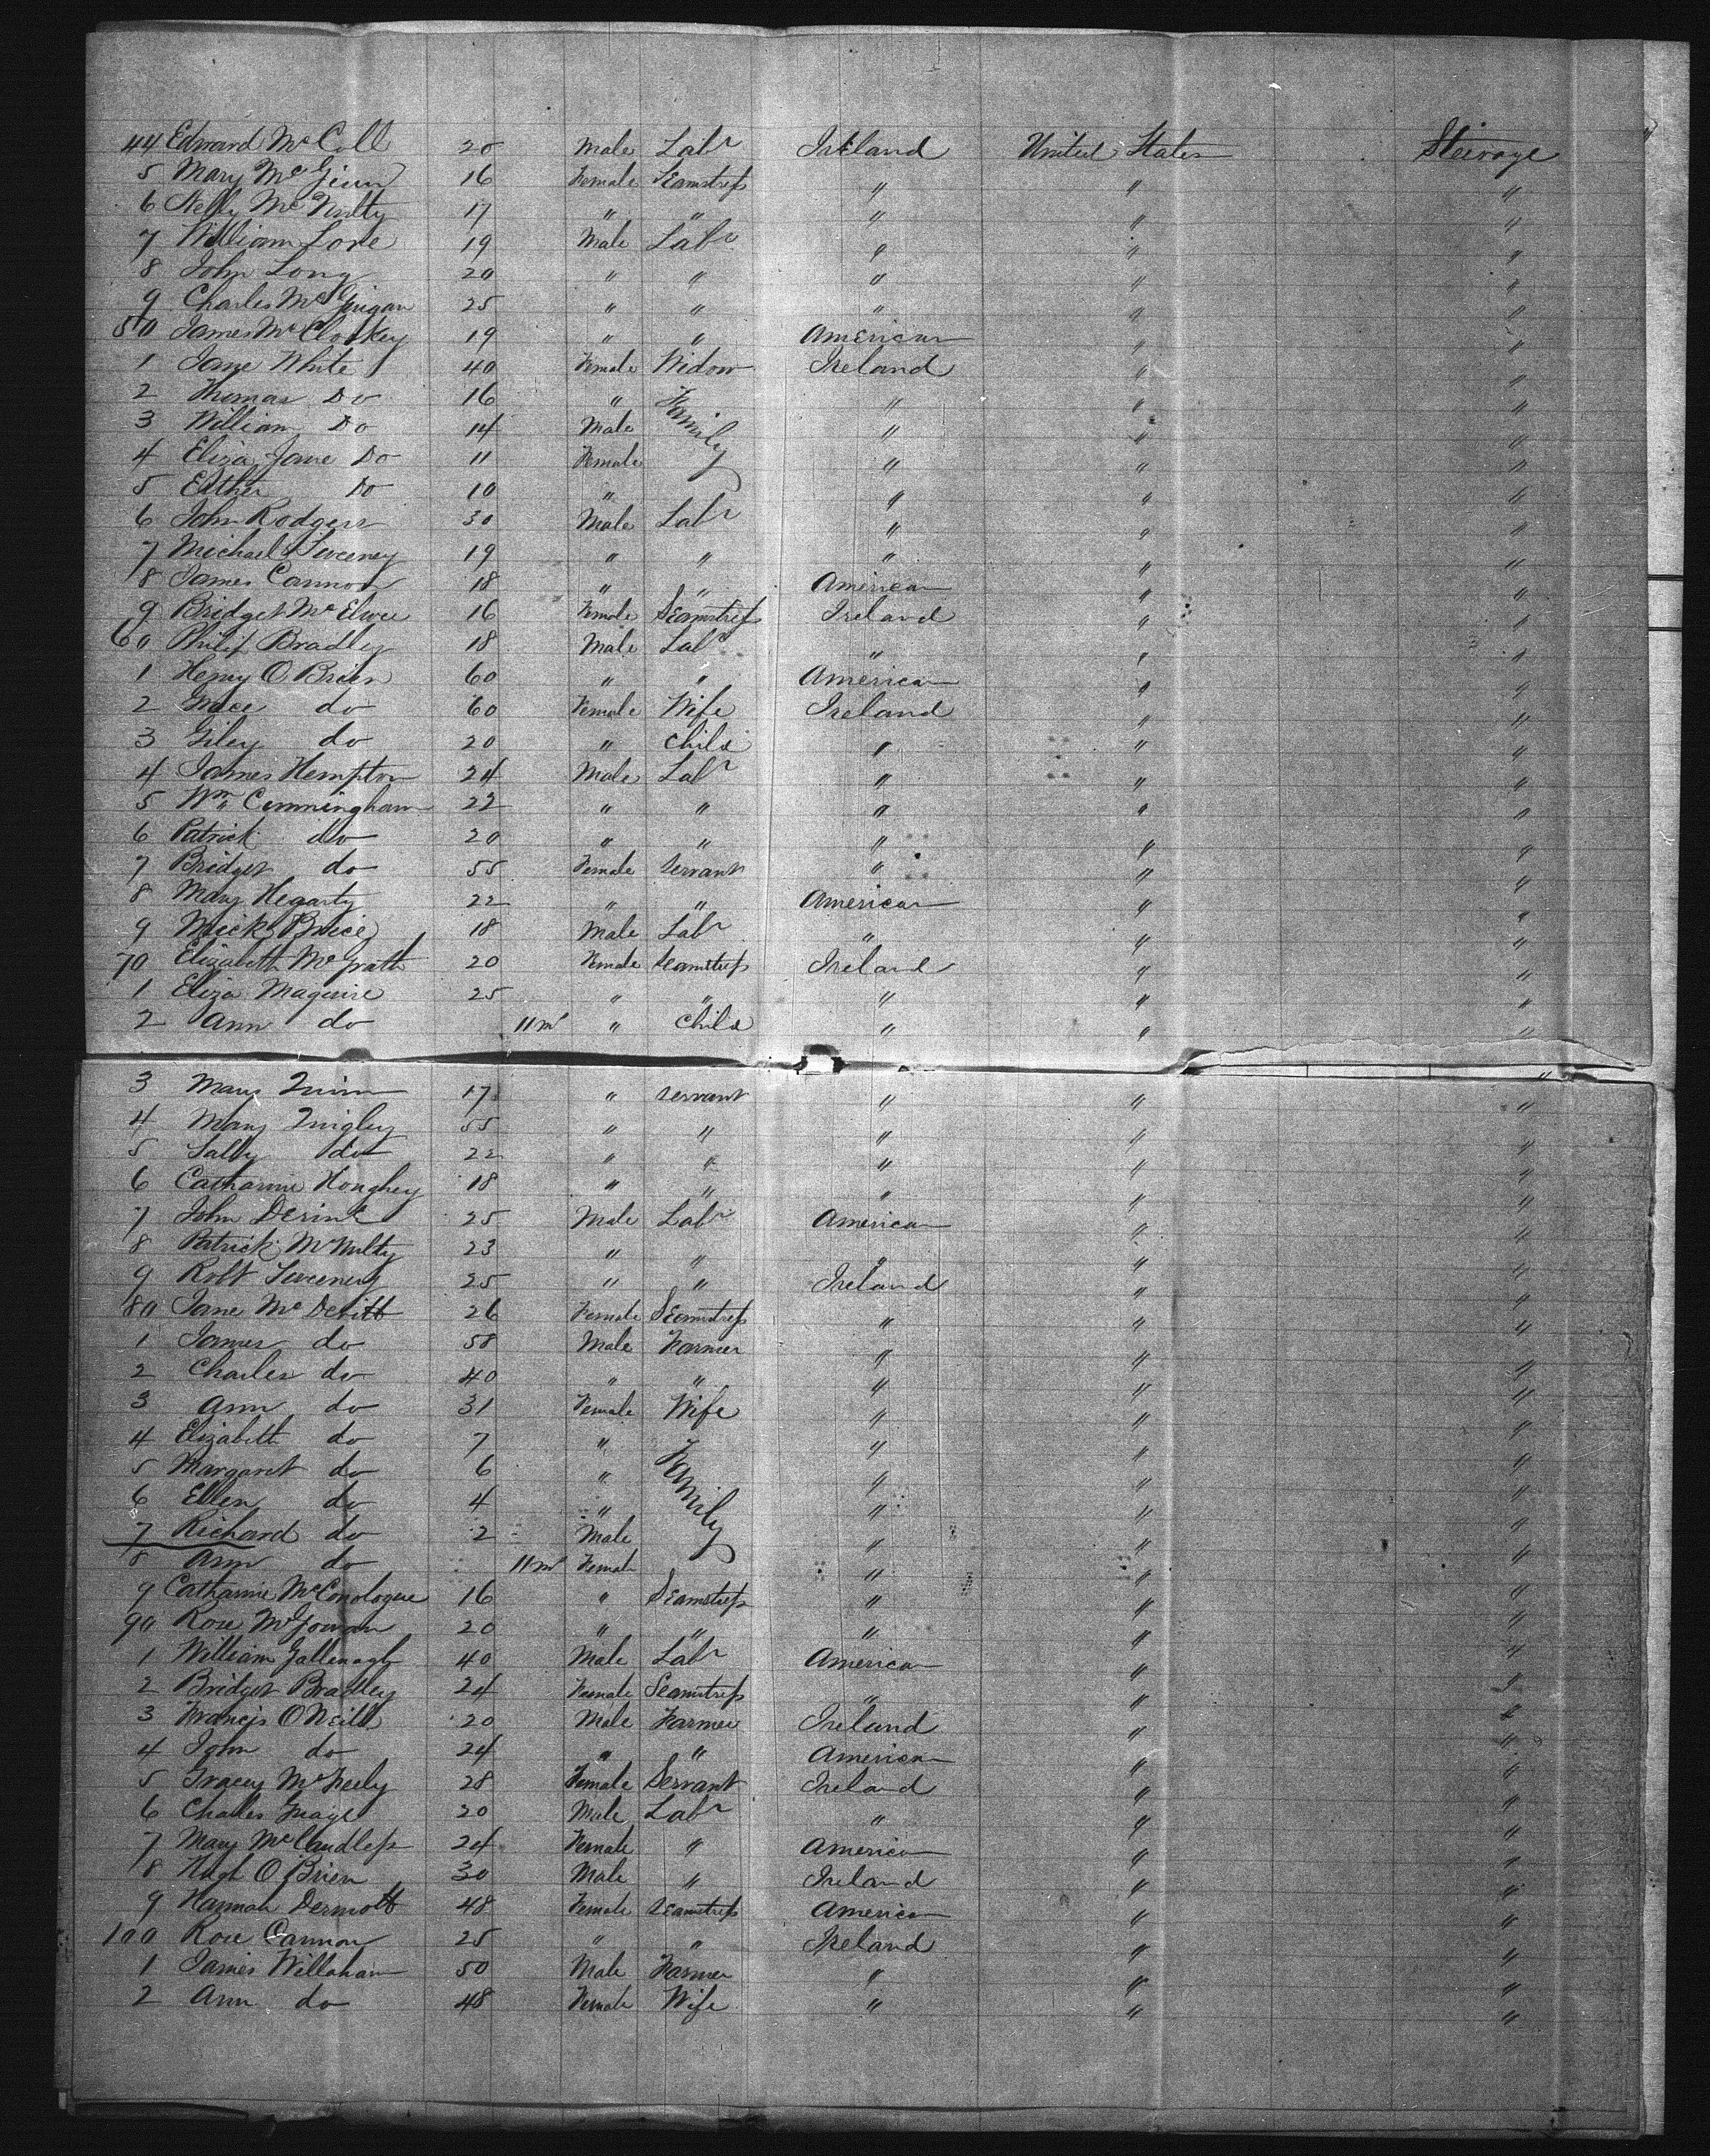 44 Edward McColl 20 Male Labr Ireland United States Steerage
5 Mary McGinn 16 Female Seamstress " " "
6 Nelly McNulty 17 " " " " "
7 William Love 19 Male Labr " " "
8 John Long 20 " " " " "
9 Charles McGuigan 25 " " " " "
50 James McCloskey 19 " " American " "
1 Jane White 40 Female Widow Ireland " "
2 Thomas Do 16 " Family " " "
3 William Do 14 Male " " "
4 Eliza Jane Do 11 Female " " "
5 Esther Do 10 " " " "
6 John Rodgers 30 Male Labr " " "
7 Michael Sweeney 19 " " " " "
8 James Cannon 18 " " American " "
9 Bridget McElwee 16 Female Seamstress Ireland " "
60 Philip Bradley 18 Male Labr " " "
1 Henry O Brien 60 " " American " "
2 Grace do 60 Female Wife Ireland " "
3 Giley do 20 " Child " " "
4 James Hempton 24 Male Labr " " "
5 Wm Cunningham 22 " " " " "
6 Patrick do 20 " " " " "
7 Bridget do 55 Female Servant " " "
8 Mary Hegarty 22 " " American " "
9 Mick 18 Male Labr " " "
70 Elizabeth McGrath 20 Female Seamstress Ireland " "
1 Eliza Maguire 25 " " " " "
2 Ann do 11 m " Child " " "
3 Mary Quinn 17 " Servant " " "
4 Mary Quigley 55 " " " " "
5 Sally do 22 " " " " "
6 Catharine Houghey 18 " " " " "
7 John Devine 25 Male Labr American " "
8 Patrick McNulty 23 " " " " "
9 Robt Sweeney 25 " " Ireland " "
80 Jane McDevitt 26 Female Seamstress " " "
1 James do 58 Male Farmer " " "
2 Charles do 40 " " " " "
3 Ann do 31 Female Wife " " "
4 Elizabeth do 7 " Family " " "
5 Margaret do 6 " " " "
6 Ellen do 4 " " " "
7 Richard do 2 Male " " "
8 Ann do 11 m Female " " "
9 Catharine McConologue 16 " Seamstress " " "
90 Rose McGowan 20 " " " " "
1 William Gallenagh 40 Male Labr American " "
2 Bridget Bradley 24 Female Seamstress " " "
3 Francis O Neill 20 Male Farmer Ireland " "
4 John do 24 " " American " "
5 Gracey McFeely 28 Female Servant Ireland " "
6 Charles 20 Male Labr " " "
7 Mary McCandless 24 Female " American " "
8 Hugh O Brien 30 Male " Ireland " "
9 Hannah Dermott 48 Female Seamstress American " "
100 Rose Cannon 25 " " Ireland " "
1 James Willahan 50 Male Farmer " " "
2 Ann do 48 Female Wife " " "